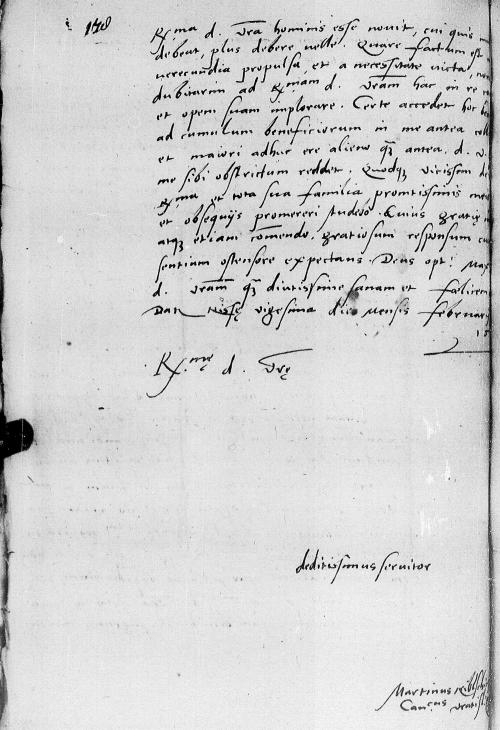 178
R.ma d. vra hominis esse novit, cui quis
debeat, plus debere velle. Quare factum est
verecundia propulsa, et a necessitate victa,
dubitarim ad R.mam d. vram hac in re
et opem suam implorare. Certe accedet hoc
ad cumulum beneficiorum in me antea
et maiori adhuc ere alieno q̃ antea, d. v.
me sibi obstrictum reddet. Quodq; vicissim
R.ma et tota sua familia promtissimis
et obsequijs promereri studebo. Cuius gratię
atq; etiam comendo, gratiosum responsum
sentium ostensore expectans. Deus opt: Max
d. vram q̃ diutissime sanam et fęlicem
Dat Nissę vigesima die Mensis februar
15
R.mę d. vrę
deditissimus servitor
Martinus
Canc̄us